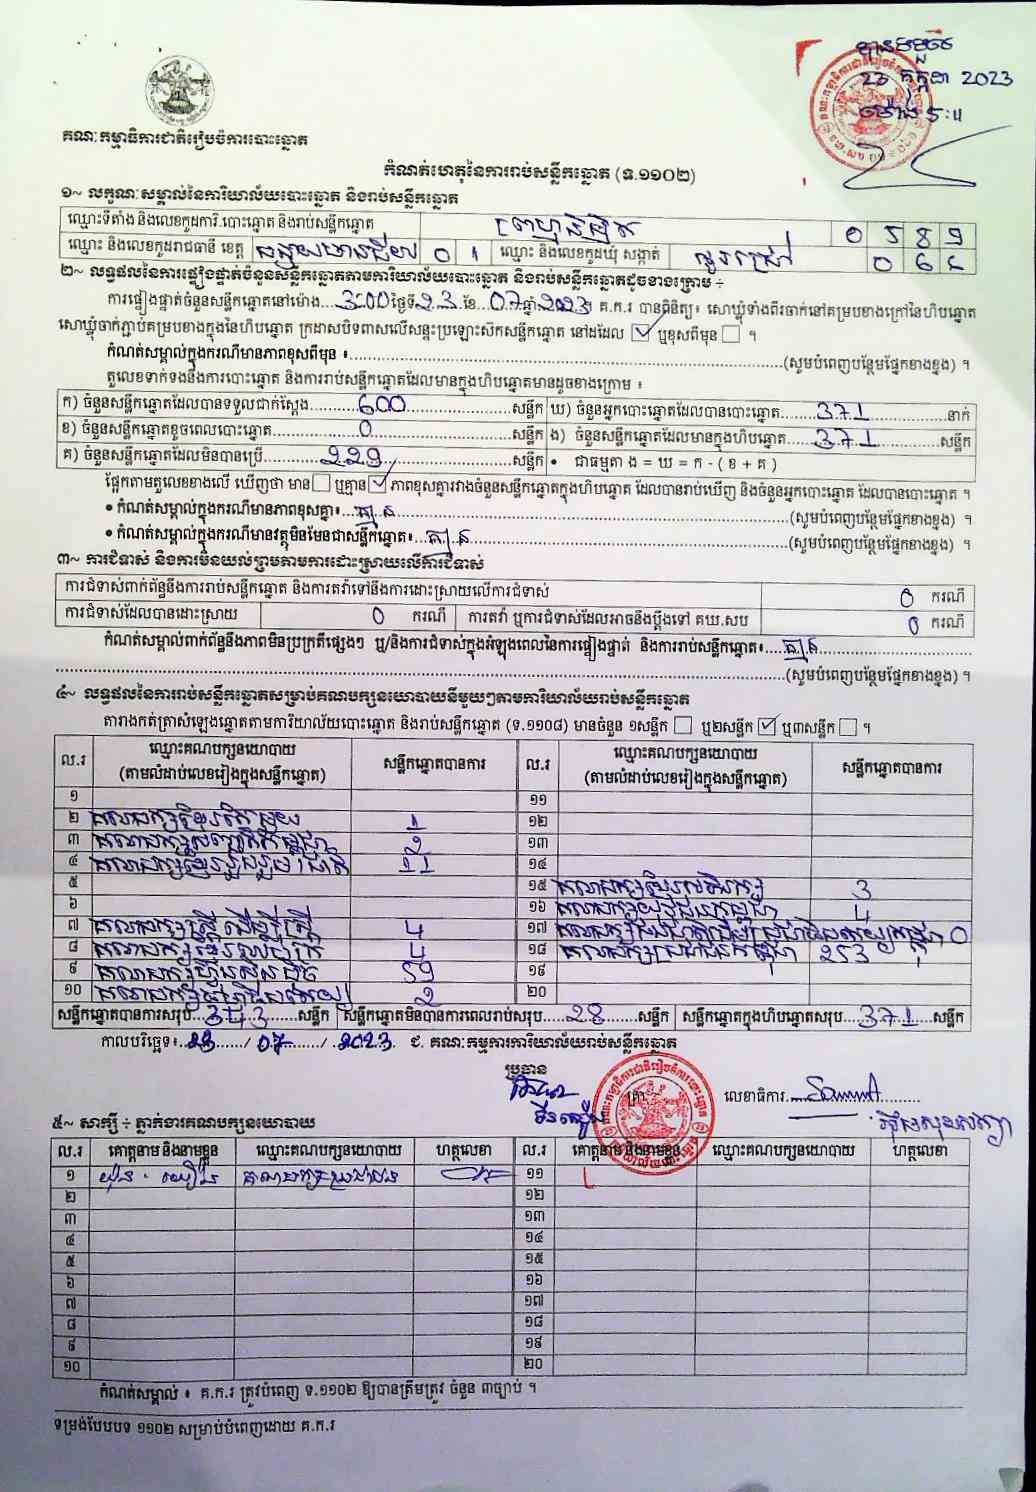 បានទទួល
23 កក្កដា 2023
ម៉ោង 5:
គណៈកម្មាធិការជាតិរៀបចំការបោះឆ្នោត
កំណត់ហេតុនៃការរាប់សន្លឹកឆ្នោត (ទ.១១០២)
១~ លក្ខណៈសម្គាល់នៃការិយាល័យបោះឆ្នោត និងរាប់សន្លឹកឆ្នោត
ឈ្មោះទីតាំង និងលេខកូដការិ.បោះឆ្នោត និងរាប់សន្លឹកឆ្នោត 0589
ឈ្មោះ និងលេខកូដរាជធានី ខេត្ត បន្ទាយមានជ័យ 01 ឈ្មោះ និងលេខកូដឃុំ សង្កាត់
២~ លទ្ធផលនៃការផ្ទៀងផ្ទាត់ចំនួនសន្លឹកឆ្នោតតាមការិយាល័យបោះឆ្នោត និងរាប់សន្លឹកឆ្នោតដូចខាងក្រោម ÷
ការផ្ទៀងផ្ទាត់ចំនួនសន្លឹកឆ្នោតនៅម៉ោង 3:00 ថ្ងៃទី 23 ខែ 07 ឆ្នាំ 2023 គ.ក.រ បានពិនិត្យ៖ សោឃ្លុំទាំងពីរចាក់នៅគម្របខាងក្រៅនៃហិបឆ្នោត
សោឃ្លុំចាក់ភ្ជាប់គម្របខាងក្នុងនៃហិបឆ្នោត ក្រដាសបិទពាសលើសន្ទះប្រឡោះស៊កសន្លឹកឆ្នោត នៅដដែល ☑ ឬខុសពីមុន ☐ ។
កំណត់សម្គាល់ក្នុងករណីមានភាពខុសពីមុន ៖ (សូមបំពេញបន្ថែមផ្នែកខាងខ្នង) ។
តួលេខទាក់ទងនឹងការបោះឆ្នោត និងការរាប់សន្លឹកឆ្នោតដែលមានក្នុងហិបឆ្នោតមានដូចខាងក្រោម ៖
ក) ចំនួនសន្លឹកឆ្នោតដែលបានទទួលជាក់ស្តែង 600 សន្លឹក ឃ) ចំនួនអ្នកបោះឆ្នោតដែលបានបោះឆ្នោត 371 នាក់
ខ) ចំនួនសន្លឹកឆ្នោតខូចពេលបោះឆ្នោត 0 សន្លឹក ង) ចំនួនសន្លឹកឆ្នោតដែលមានក្នុងហិបឆ្នោត 371 សន្លឹក
គ) ចំនួនសន្លឹកឆ្នោតដែលមិនបានប្រើ 229 សន្លឹក • ជាធម្មតា ង = ឃ = ក - ( ខ + គ )
ផ្អែកតាមតួលេខខាងលើ ឃើញថា មាន ☐ ឬគ្មាន ☑ ភាពខុសគ្នារវាងចំនួនសន្លឹកឆ្នោតក្នុងហិបឆ្នោត ដែលបានរាប់ឃើញ និងចំនួនអ្នកបោះឆ្នោត ដែលបានបោះឆ្នោត ។
• កំណត់សម្គាល់ក្នុងករណីមានភាពខុសគ្នា៖ គ្មាន (សូមបំពេញបន្ថែមផ្នែកខាងខ្នង) ។
• កំណត់សម្គាល់ក្នុងករណីមានវត្ថុមិនមែនជាសន្លឹកឆ្នោត៖ គ្មាន (សូមបំពេញបន្ថែមផ្នែកខាងខ្នង) ។
៣~ ការជំទាស់ និងការមិនយល់ព្រមតាមការដោះស្រាយលើការជំទាស់
ការជំទាស់ពាក់ព័ន្ធនឹងការរាប់សន្លឹកឆ្នោត និងការតវ៉ាទៅនឹងការដោះស្រាយលើការជំទាស់ 0 ករណី
ការជំទាស់ដែលបានដោះស្រាយ 0 ករណី ការតវ៉ា ឬការជំទាស់ដែលអាចនឹងប្តឹងទៅ គឃ.សប 0 ករណី
កំណត់សម្គាល់ពាក់ព័ន្ធនឹងភាពមិនប្រក្រតីផ្សេងៗ ឬ/និងការជំទាស់ក្នុងអំឡុងពេលនៃការផ្ទៀងផ្ទាត់ និងការរាប់សន្លឹកឆ្នោត៖ គ្មាន
(សូមបំពេញបន្ថែមផ្នែកខាងខ្នង) ។
៤~ លទ្ធផលនៃការរាប់សន្លឹកឆ្នោតសម្រាប់គណបក្សនយោបាយនីមួយៗតាមការិយាល័យរាប់សន្លឹកឆ្នោត
តារាងកត់ត្រាសំឡេងឆ្នោតតាមការិយាល័យបោះឆ្នោត និងរាប់សន្លឹកឆ្នោត (ទ.១១០៨) មានចំនួន ១សន្លឹក ☐ ឬ២សន្លឹក ☑ ឬ៣សន្លឹក ☐ ។
ល.រ ឈ្មោះគណបក្សនយោបាយ (តាមលំដាប់លេខរៀងក្នុងសន្លឹកឆ្នោត) សន្លឹកឆ្នោតបានការ ល.រ ឈ្មោះគណបក្សនយោបាយ (តាមលំដាប់លេខរៀងក្នុងសន្លឹកឆ្នោត) សន្លឹកឆ្នោតបានការ
១ ១១
២ គណបក្សខ្មែរតែមួយ 1 ១២
៣ គណបក្សសញ្ជាតិកម្ពុជា 2 ១៣
៤ គណបក្សខ្មែររួបរួមជាតិ 11 ១៤
៥ ១៥ គណបក្ស 3
៦ ១៦ គណបក្ស 4
៧ គណបក្សស្ត្រីដើម្បីស្ត្រី 4 ១៧ គណបក្ស 0
៨ គណបក្ស 4 ១៨ គណបក្សប្រជាជនកម្ពុជា 253
៩ គណបក្សហ៊្វុនស៊ិនប៉ិច 59 ១៩
១០ គណបក្ស 2 ២០
សន្លឹកឆ្នោតបានការសរុប 343 សន្លឹក សន្លឹកឆ្នោតមិនបានការពេលរាប់សរុប 28 សន្លឹក សន្លឹកឆ្នោតក្នុងហិបឆ្នោតសរុប 371 សន្លឹក
កាលបរិច្ឆេទ៖ 23 / 07 / 2023 ជ. គណៈកម្មការការិយាល័យរាប់សន្លឹកឆ្នោត
ប្រធាន
លេខាធិការ
៥~ សាក្សី ÷ ភ្នាក់ងារគណបក្សនយោបាយ
ល.រ គោត្តនាម និងនាមខ្លួន ឈ្មោះគណបក្សនយោបាយ ហត្ថលេខា ល.រ គោត្តនាម និងនាមខ្លួន ឈ្មោះគណបក្សនយោបាយ ហត្ថលេខា
១ គណបក្សប្រជាជន ១១
២ ១២
៣ ១៣
៤ ១៤
៥ ១៥
៦ ១៦
៧ ១៧
៨ ១៨
៩ ១៩
១០ ២០
កំណត់សម្គាល់ ៖ គ.ក.រ ត្រូវបំពេញ ទ.១១០២ ឱ្យបានត្រឹមត្រូវ ចំនួន ៣ច្បាប់ ។
ទម្រង់បែបបទ ១១០២ សម្រាប់បំពេញដោយ គ.ក.រ